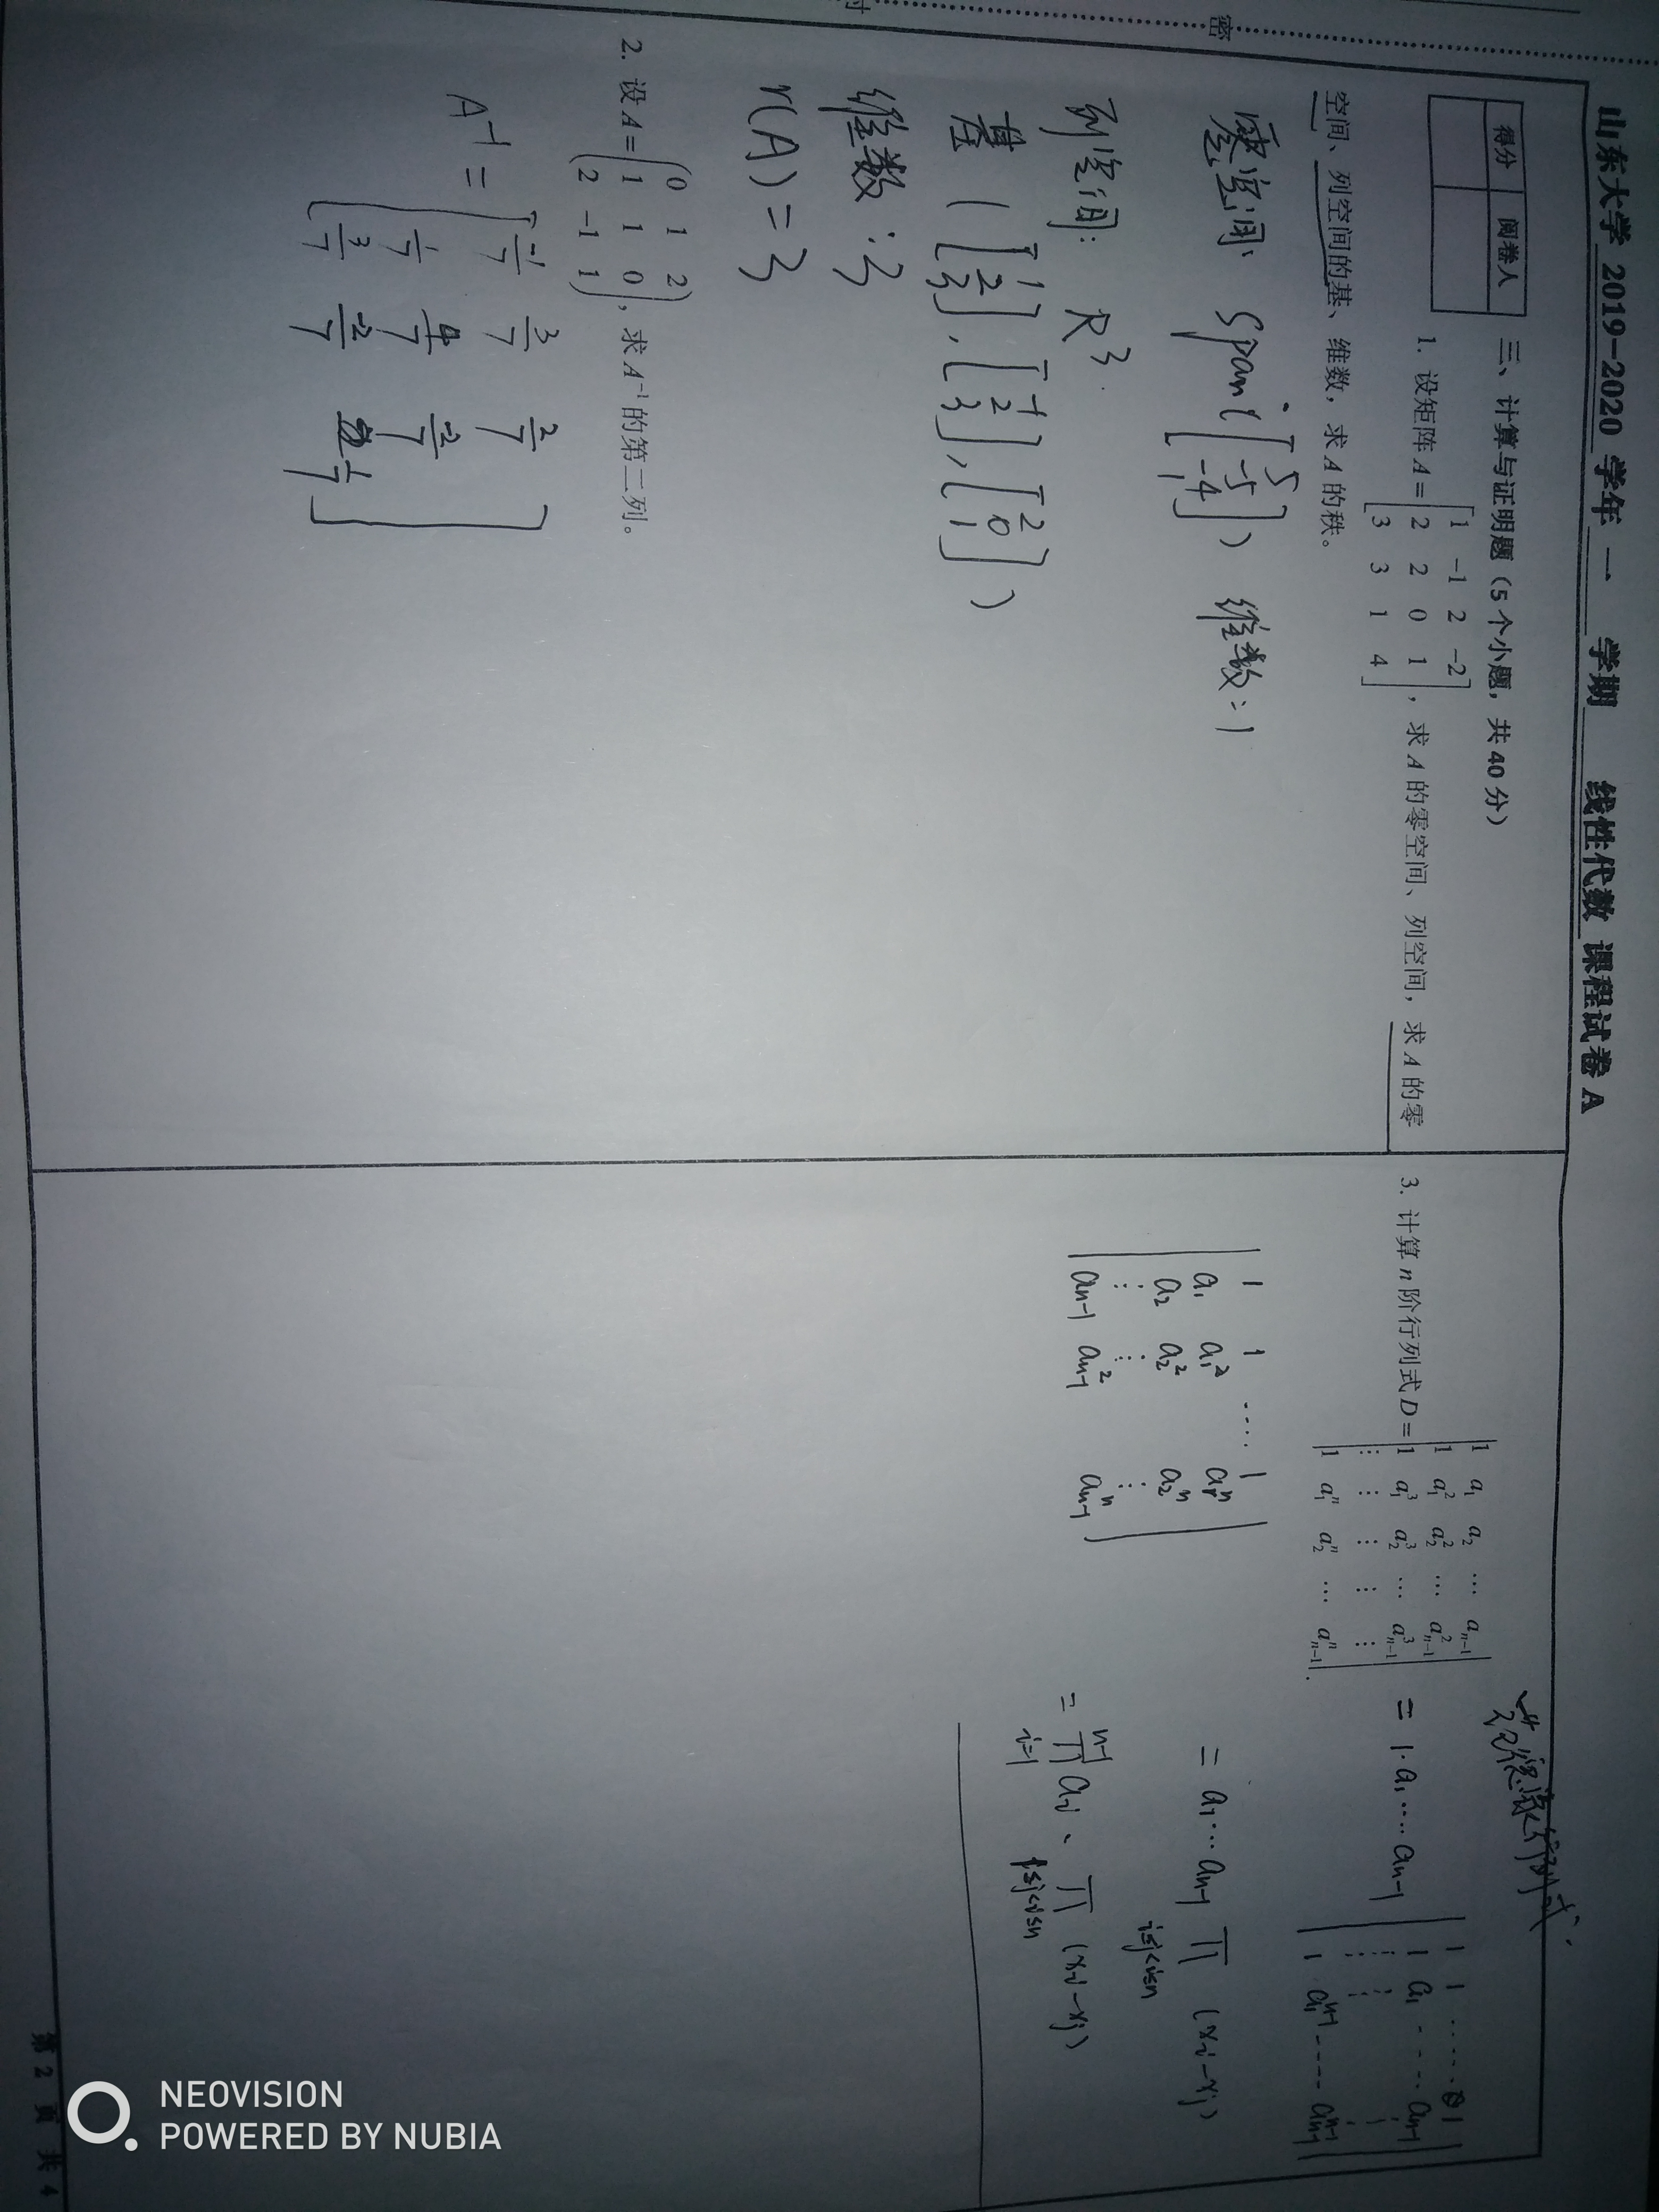 山东大学 2019-2020 学年 一 学期 线性代数 课程试卷 A
得分 阅卷人
三、计算与证明题（5 个小题，共 40 分）
1. 设矩阵 A = [1 -1 2 -2; 2 2 0 1; 3 3 1 4]，求 A 的零空间、列空间，求 A 的零
空间、列空间的基、维数，求 A 的秩。
零空间: span( [5 -5 -4 1] ) 维数:1
列空间: R³
基 ( [1 2 3], [-1 2 3], [2 0 1] )
维数:3
r(A)=3
2. 设 A = (0 1 2; 1 1 0; 2 -1 1)，求 A⁻¹ 的第二列。
A⁻¹ =
-1/7 3/7 2/7
1/7 4/7 -2/7
3/7 -2/7 1/7
范德蒙行列式
3. 计算 n 阶行列式 D =
1 a₁ a₂ ⋯ aₙ₋₁
1 a₁² a₂² ⋯ aₙ₋₁²
1 a₁³ a₂³ ⋯ aₙ₋₁³
⋮ ⋮ ⋮ ⋮ ⋮
1 a₁ⁿ a₂ⁿ ⋯ aₙ₋₁ⁿ .
= 1·a₁····aₙ₋₁
1 1 ······ 1
1 a₁ ---- aₙ₋₁
⋮ ⋮ ⋮
1 a₁ⁿ⁻¹ ---- aₙ₋₁ⁿ⁻¹
1 1 ···· 1
a₁ a₁² a₁ⁿ
a₂ a₂² a₂ⁿ
⋮ ⋮ ⋮
aₙ₋₁ aₙ₋₁² aₙ₋₁ⁿ
= a₁···aₙ₋₁ ∏ (xᵢ-xⱼ)
i≤j<i≤n
n-1
= ∏ aᵢ · ∏ (xᵢ-xⱼ)
i=1 1≤j<i≤n
密
第 2 页 共 4
NEOVISION
POWERED BY NUBIA